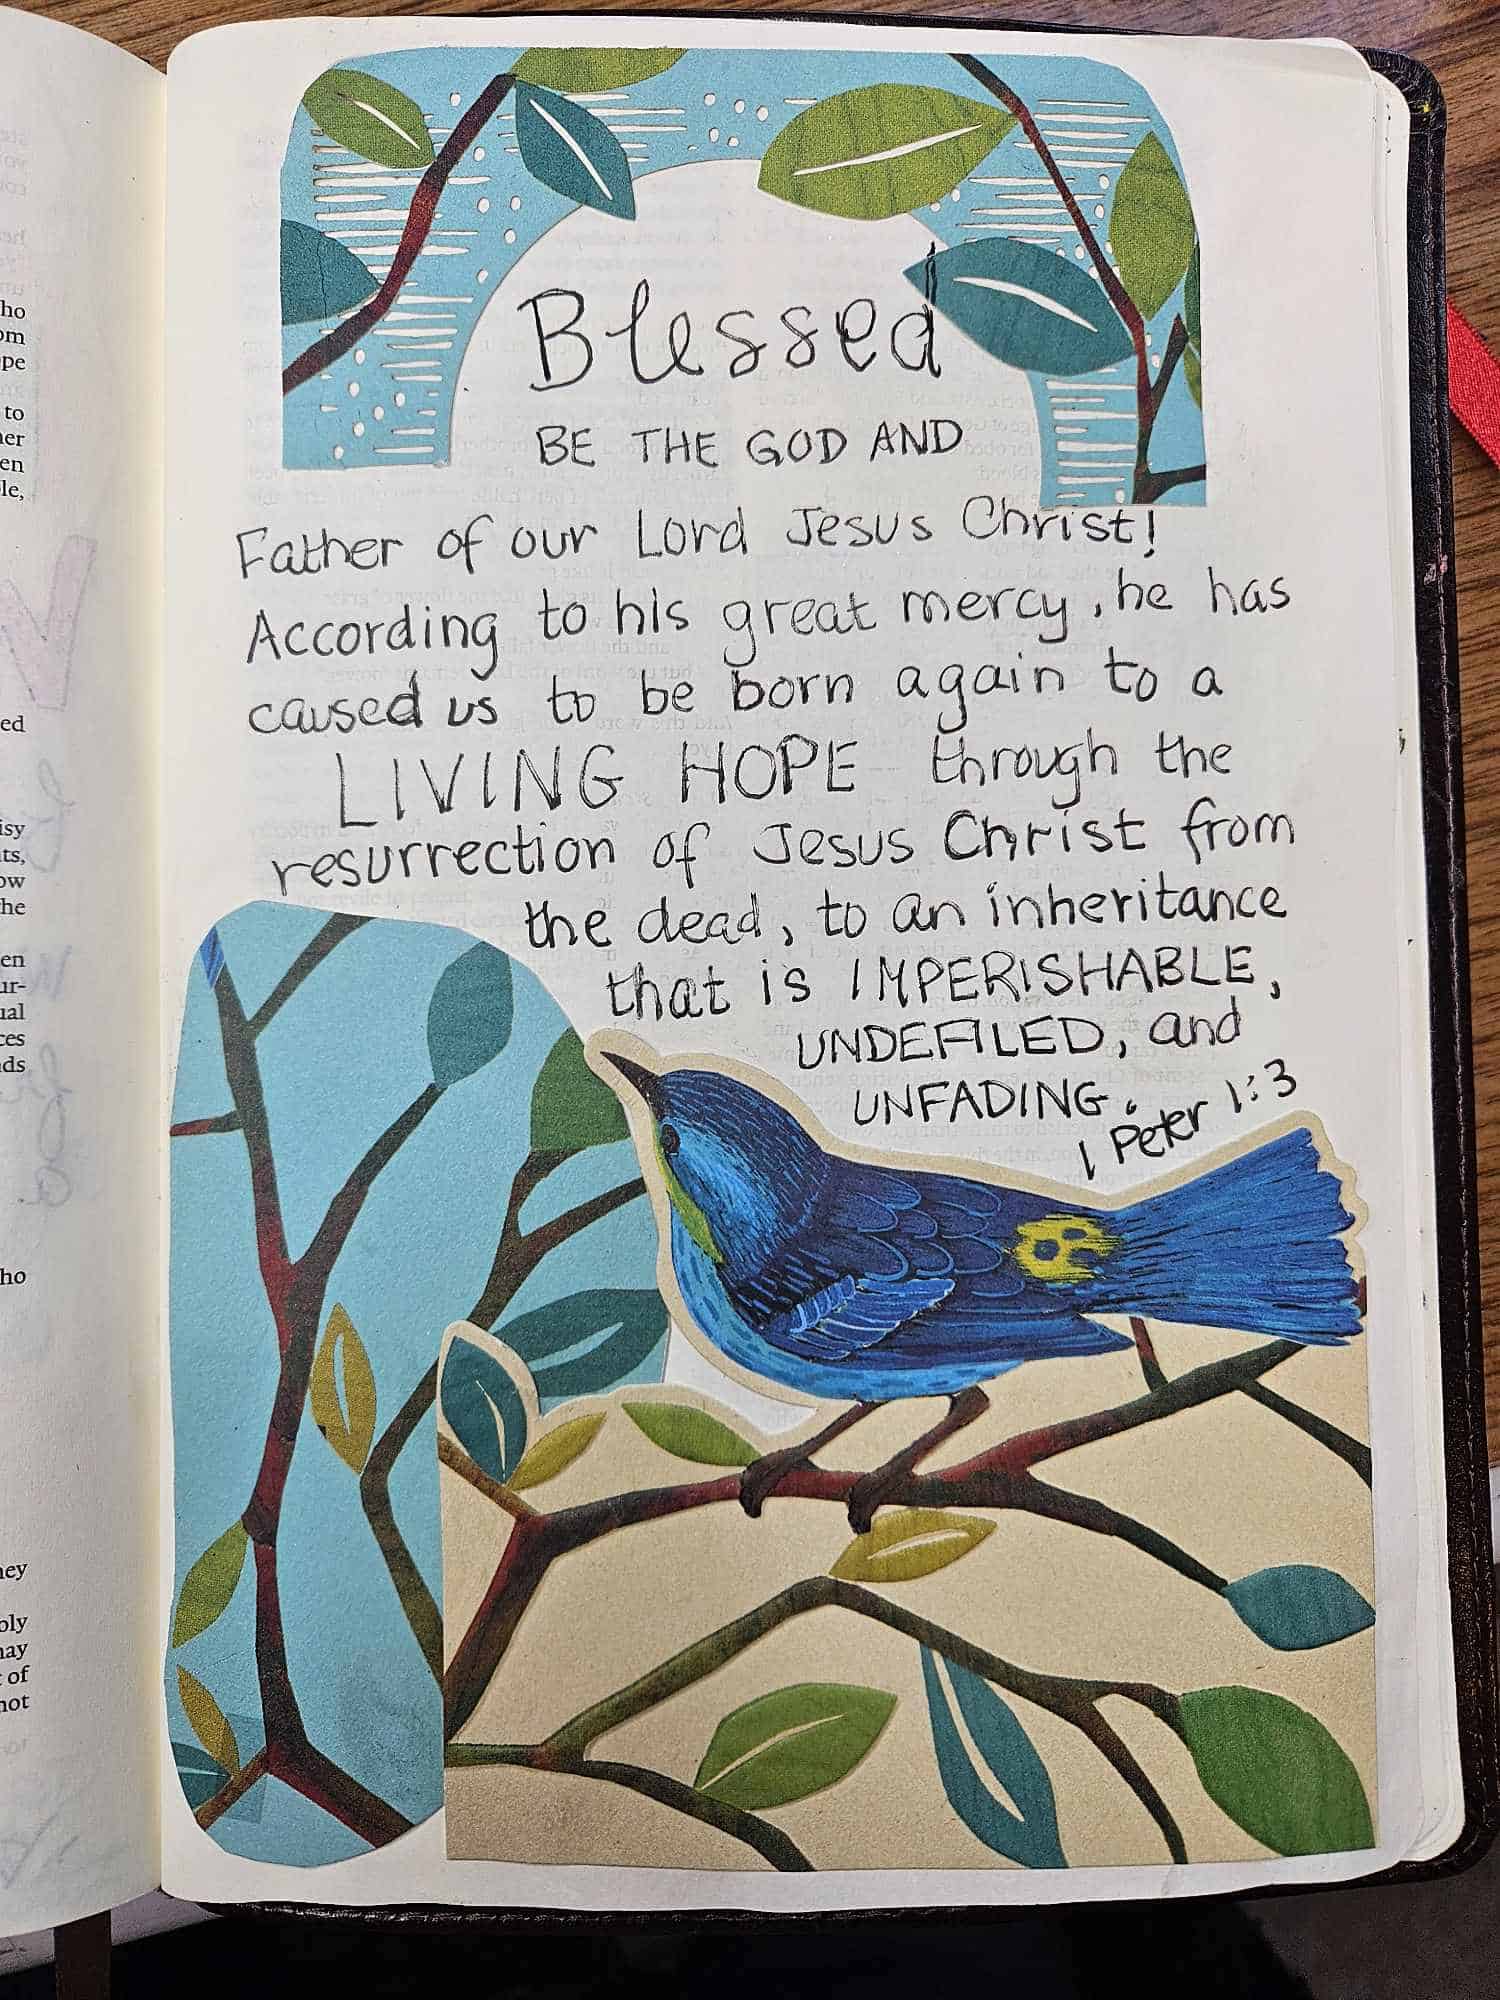 Blessed
BE THE GOD AND
Father of our Lord Jesus Christ!
According to his great mercy, he has
caused us to be born again to a
LIVING HOPE through the
resurrection of Jesus Christ from
the dead, to an inheritance
that is IMPERISHABLE,
UNDEFILED, and
UNFADING.
1 Peter 1:3